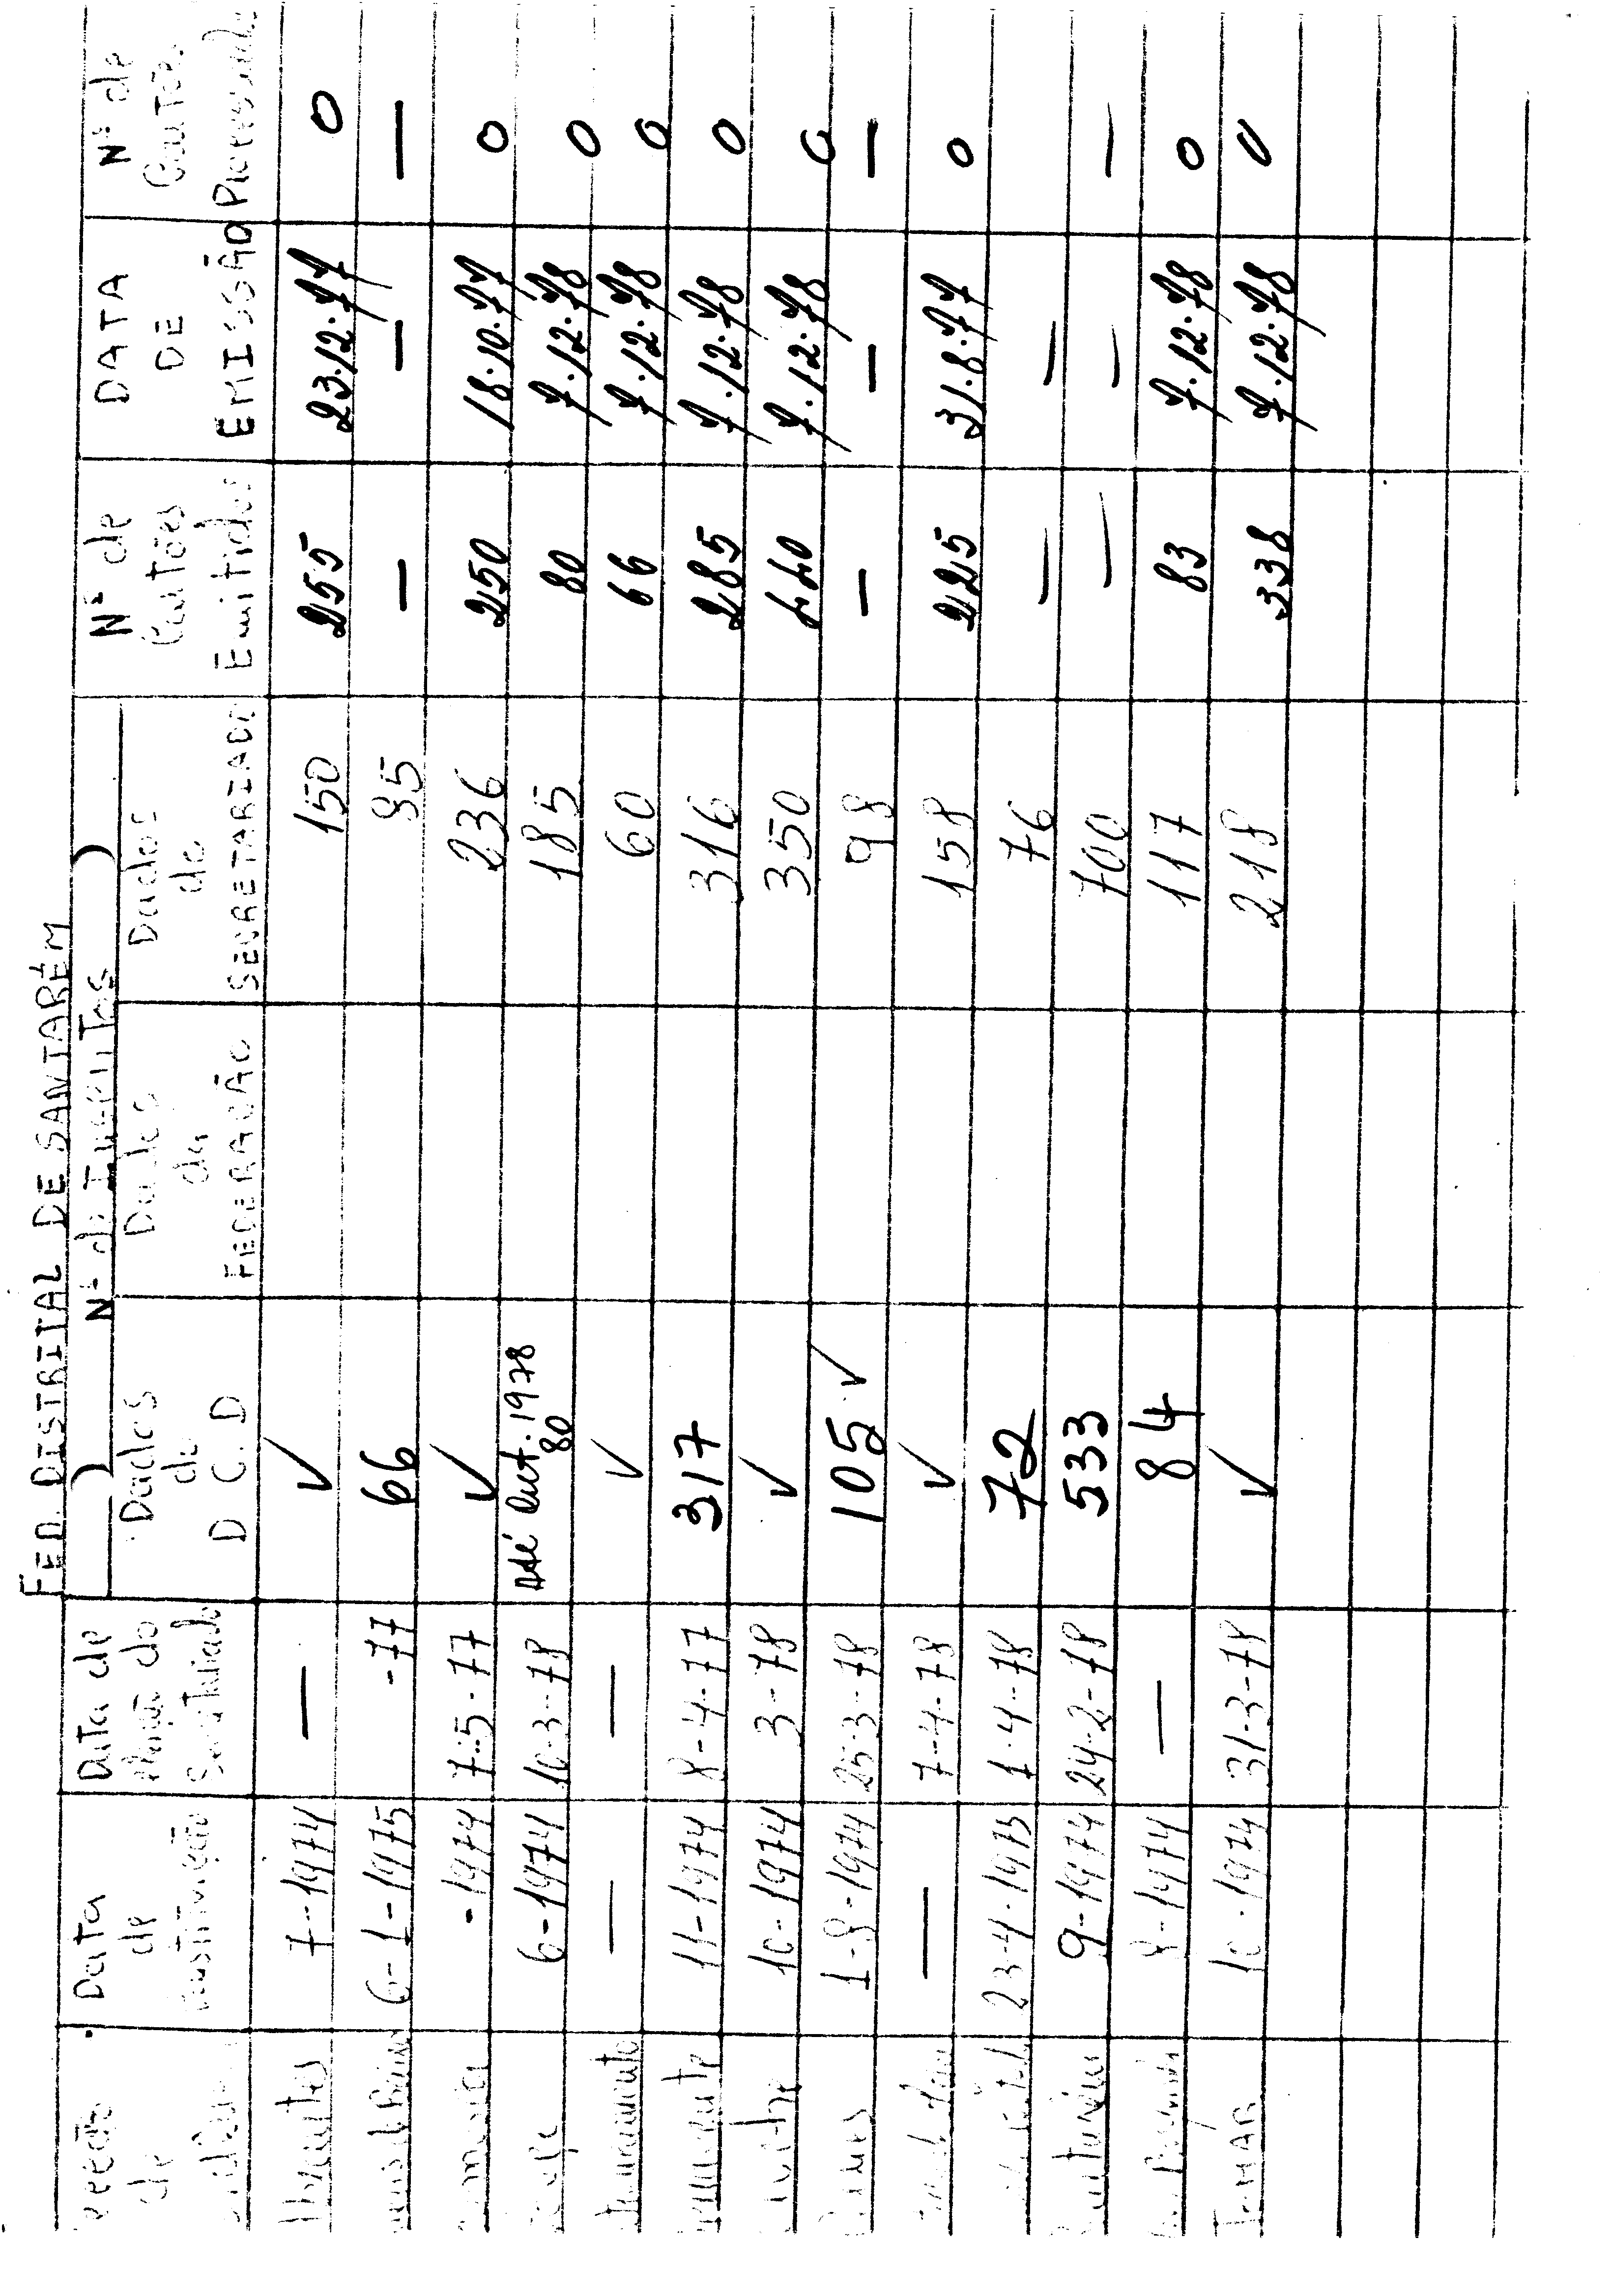 FED DISTRITAL DE SANTARÉM
Data de Data de Nº de Inscritos Nº de DATA Nº de
de do Dados Dados Dados Cartões DE Cartões
Secretariado de da do Emitidos EMISSÃO
D C D FEDERAÇÃO SECRETARIADO
Abrantes 7-1974 — ✓ 150 255 23.12.77 0
6-1-1975 -77 66 95 — — —
-1974 7-5-77 ✓ 236 250 18.10.77 0
6-1974 10-3-78 Até Out. 1978 80 185 80 7.12.78 0
Entroncamento — — ✓ 60 66 7.12.78 0
11-1974 8-4-77 317 316 285 7.12.78 0
10-1974 3-78 ✓ 350 440 7.12.78 0
1-8-1974 25-3-78 105 ✓ 98 — — —
— 7-4-78 ✓ 158 225 31.8.77 0
23-4-1975 1-4-78 72 76 — —
9-1974 24-2-78 533 700 — — —
8-1974 — 84 117 83 7.12.78 0
TOMAR 10-1974 31-3-78 ✓ 218 338 7.12.78 0